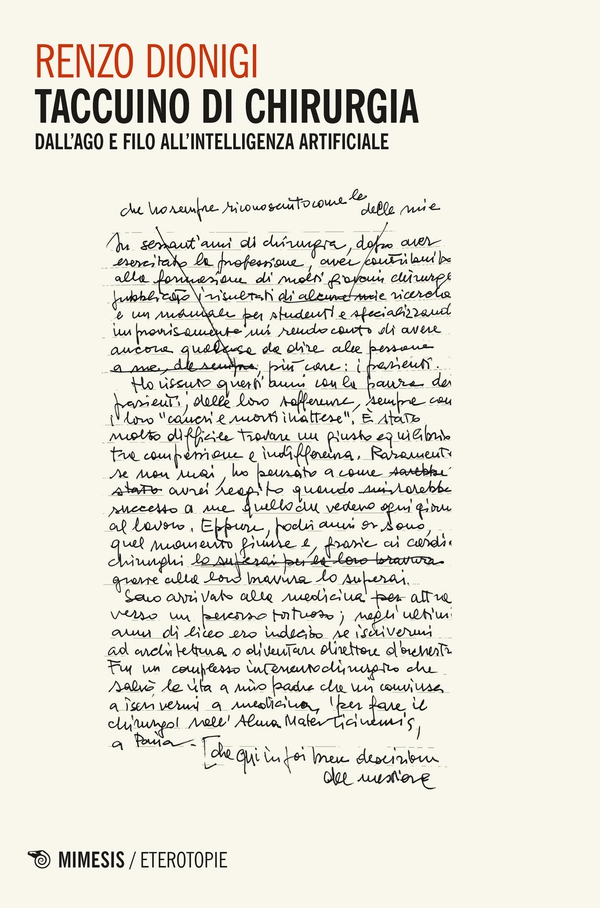 RENZO DIONIGI
TACCUINO DI CHIRURGIA
DALL'AGO E FILO ALL'INTELLIGENZA ARTIFICIALE
che ho sempre riconosciuto come le delle mie
In sessant'anni di chirurgia, dopo aver
esercitato la professione, aver contribuito
alla formazione di molti giovani chirurghi
pubblicato i risultati di alcune mie ricerche
e un manuale per studenti e specializzandi
improvvisamente mi rendo conto di avere
ancora qualcosa da dire alle persone
a me, da sempre, più care: i pazienti.
Ho vissuto questi anni con la paura dei
pazienti, delle loro sofferenze, sempre con
i loro "cancri e morti inattese". È stato
molto difficile trovare un giusto equilibrio
tra compassione e indifferenza. Raramente
se non mai, ho pensato a come sarebbe
stato avrei reagito quando mi sarebbe
successo a me quello che vedevo ogni giorn
al lavoro. Eppure, pochi anni or sono,
quel momento giunse e, grazie ai cardio-
chirurghi lo superai per la loro bravura
grazie alla loro bravura lo superai.
Sono arrivato alla medicina per attra
verso un percorso tortuoso; negli ultimi
anni di liceo ero indeciso se iscrivermi
ad architettura o diventare direttore d'orchestr
Fu un complesso intervento chirurgico che
salvò la vita a mio padre che mi convinse
a iscrivermi a medicina, "per fare il
chirurgo" nell'Alma Mater Ticinensis,
a Pavia.
[che qui in foi
MIMESIS / ETEROTOPIE